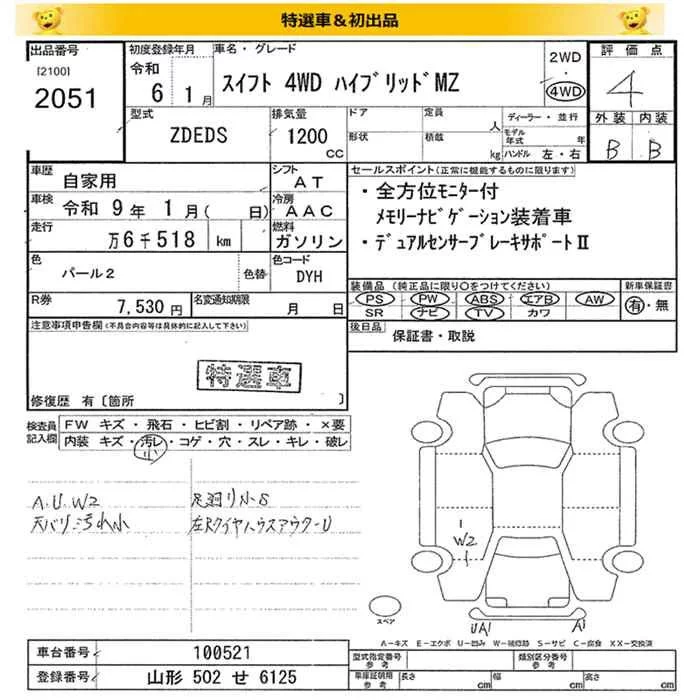 特選車＆初出品
出品番号
[2100]
2051
初度登録年月
令和
6 1月
車名・グレード
スイフト 4WD ハイブリッドMZ
2WD
・
4WD
評価点
4
外装 内装
B B
型式
ZDEDS
排気量
1200
CC
ドア
形状
定員
人
積載
kg
ディーラー・並行
モデル年式 年
ハンドル 左・右
車歴
自家用
シフト
AT
車検
令和 9年 1月( 日)
冷房
AAC
走行
万6千518 km
燃料
ガソリン
色
パール2
色替
色コード
DYH
R券
7,530円
名変通知期限
月 日
セールスポイント(正常に機能するものに限ります)
・全方位モニター付
メモリーナビゲーション装着車
・デュアルセンサーブレーキサポートⅡ
装備品 (純正品に限り○をつけてください)
新車保証書
PS PW ABS エアB AW
SR ナビ TV カワ
有・無
後日品
保証書・取説
注意事項申告欄(不具合内容等は具体的に記入して下さい)
特選車
修復歴 有〔箇所 〕
検査員記入欄
FW キズ・飛石・ヒビ割・リペア跡・×要
内装 キズ・汚レ・コゲ・穴・スレ・キレ・破レ
小
A.U.W2 足廻り小S
天バリ汚れ小 左Rタイヤハウスアウター U
W2
スペア
UA1 A1
A－キズ E－エクボ U－凹み W－補修跡 S－サビ C－腐食 XX－交換済
車台番号
100521
登録番号
山形 502 せ 6125
型式指定番号
参考
類別区分番号
参考
車庫証明用
参考
長さ cm 幅 cm 高さ cm